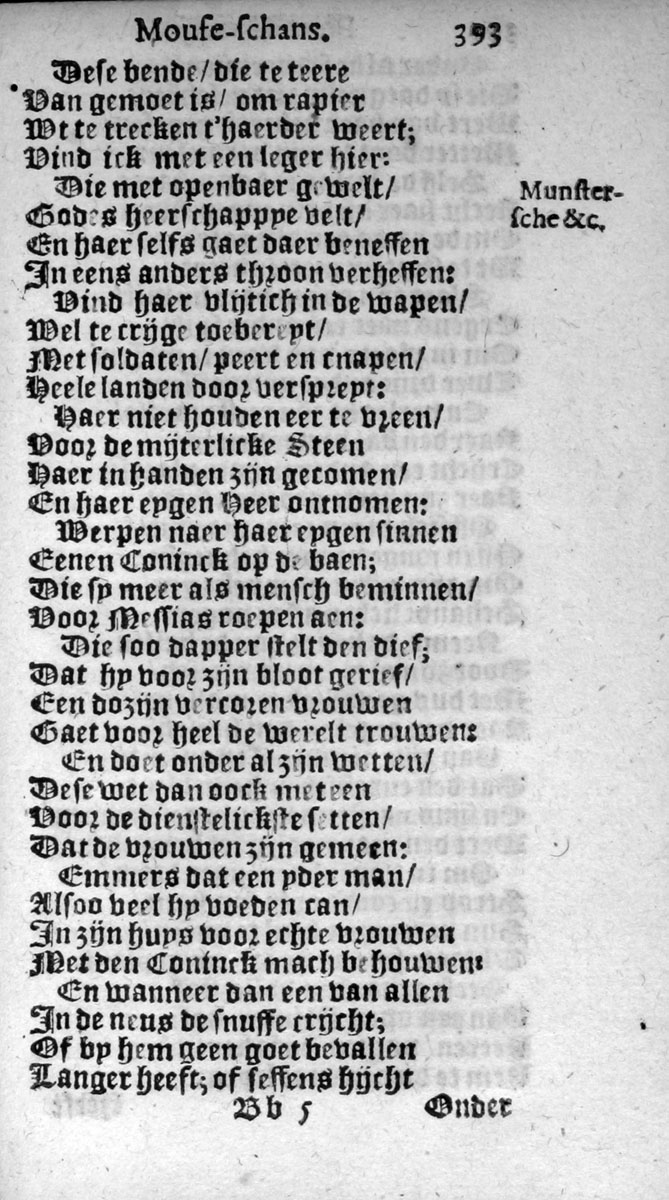 Mouse-schans. 393
Dese bende/ die te teere
Van gemoet is/ om rapier
Wt te trecken t'haerder weert;
Vind ick met een leger hier:
Die met openbaer gewelt/
Munster-
Godes heerschappye velt/
sche &c.
En haer selfs gaet daer beneffen
In eens anders throon verheffen:
Vind haer vlijtich in de wapen/
Wel te crijge toebereyt/
Met soldaten/ peert en cnapen/
Heele landen door verspreyt:
Haer niet houden eer te vreen/
Voor de mijterlicke Steen
Haer in handen zijn gecomen/
En haer eygen Heer ontnomen:
Werpen naer haer eygen sinnen
Eenen Coninck op de baen;
Die sy meer als mensch beminnen/
Voor Messias roepen aen:
Die soo dapper stelt den dief;
Dat hy voor zijn bloot gerief/
Een dozijn vercoren vrouwen
Gaet voor heel de werelt trouwen:
En doet onder al zijn wetten/
Dese wet dan oock met een
Voor de dienstelickste setten/
Dat de vrouwen zijn gemeen:
Emmers dat een yder man/
Alsoo veel hy voeden can/
In zijn huys voor echte vrouwen
Met den Coninck mach behouwen:
En wanneer dan een van allen
In de neus de snuffe crijcht;
Of by hem geen goet bevallen
Langer heeft; of seffens hijcht
Bb 5 Onder